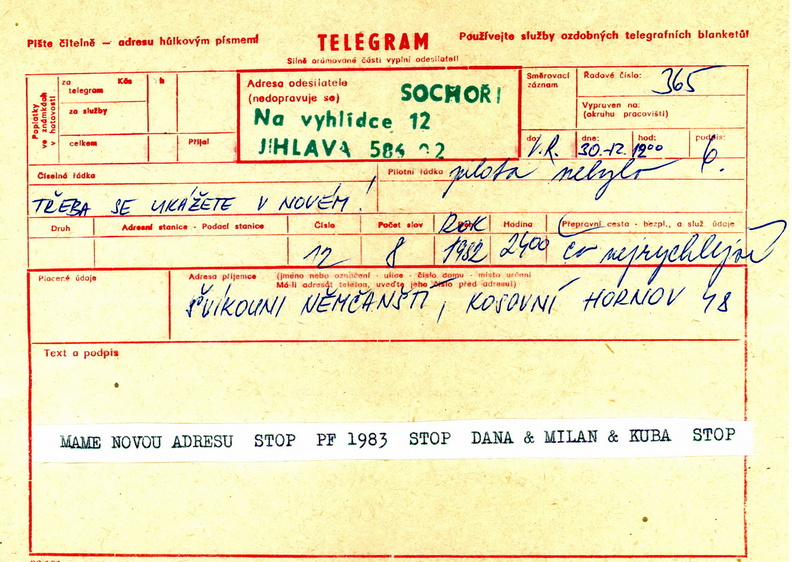 Pište čitelně — adresu hůlkovým písmem!
TELEGRAM
Používejte služby ozdobných telegrafních blanketů!
Silně orámované části vyplní odesílatel!
Poplatky ve známkách v hotovosti
za telegram
Kčs
h
za služby
celkem
Přijal
Adresa odesílatele
(nedopravuje se)
SOCHOŘI
Na vyhlídce 12
JIHLAVA 586 02
Směrovací záznam
Řadové číslo:
365
Vypraven na:
(okruhu pracovišti)
dne:
hod:
podpis:
V.R.
30.-12.
12⁰⁰
Číselná řádka
Pilotní řádka
pilota nebylo
TŘEBA SE UKÁŽETE V NOVÉM!
Druh
Adresní stanice - Podací stanice
Číslo
Počet slov
ROK
Hodina
Přepravní cesta - bezpl., a služ údaje
12
8
1982
2400
co nejrychlejší
Placené údaje
Adresa příjemce - (jméno nebo označení - ulice - číslo domu - místo určení
Má-li adresát telefon, uveďte jeho číslo před adresu!)
ŠVÍKOUNI NĚMČANŠTÍ, KOSOVNÍ HORNOV 48
Text a podpis
MAME NOVOU ADRESU STOP PF 1983 STOP DANA & MILAN & KUBA STOP